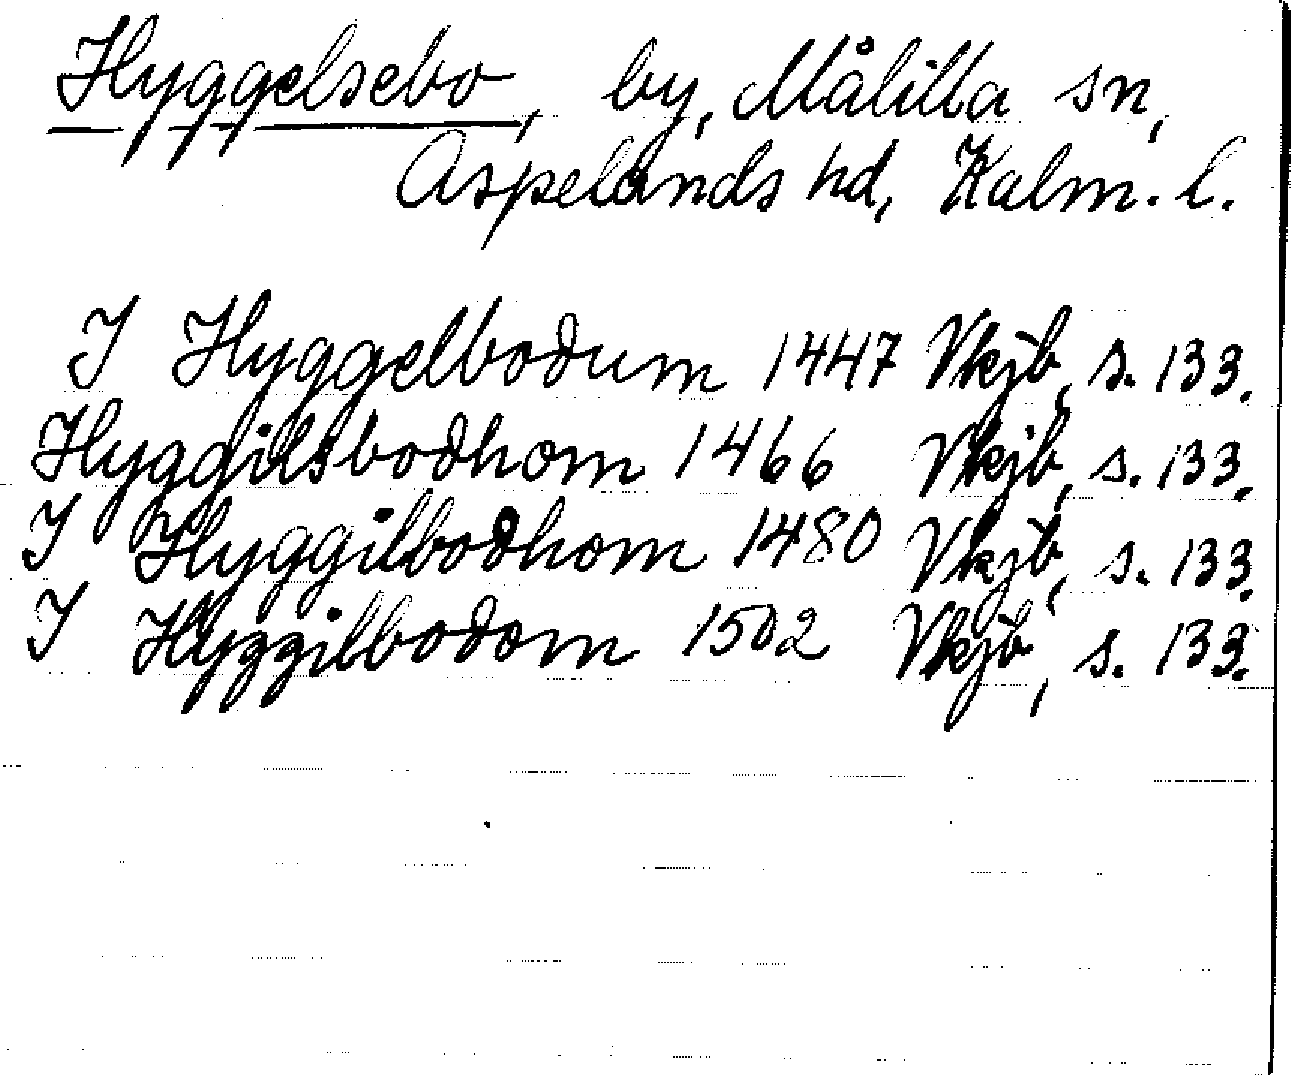 Hyggelsebo, by, Målilla sn,
Aspelands hd, Kalm. l.
I Hyggelboðum 1447 Vkjb, s. 133.
Hyggilsboðhom 1466 Vkjb, s. 133.
I Hyggilboðhom 1480 Vkjb, s. 133.
I Hyggilboðom 1502 Vkjb, s. 133.